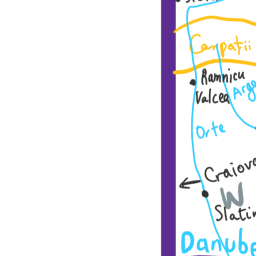 Carpații
Ramnicu
Valcea
Arge
Orte
Craiova
W
Slatin
Danube